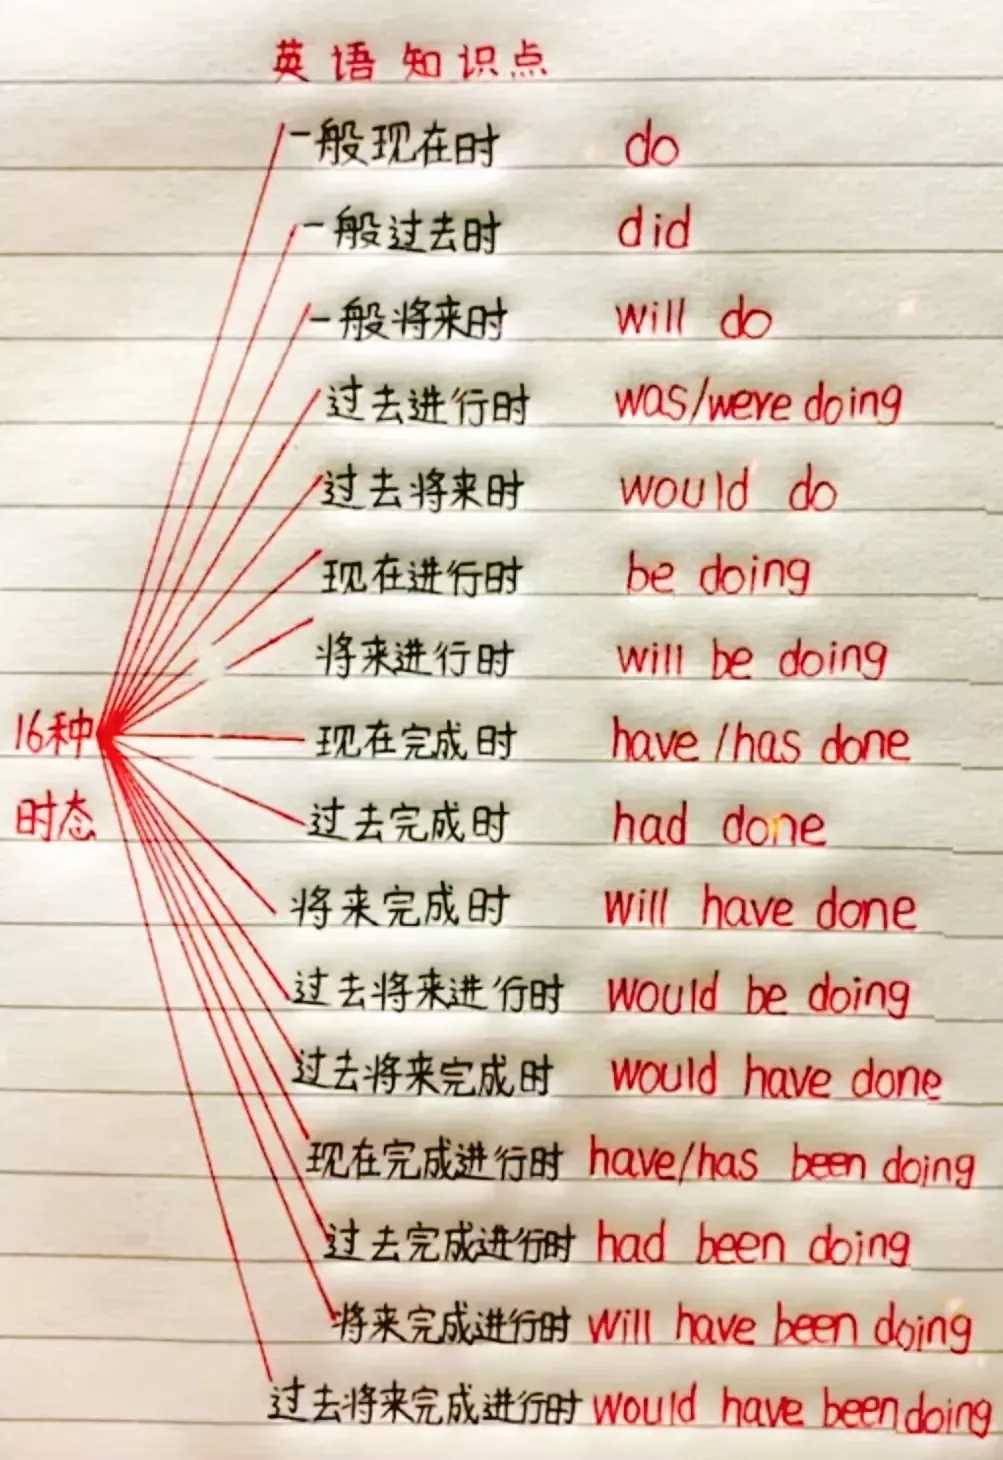 英语知识点
一般现在时 do
一般过去时 did
一般将来时 will do
过去进行时 was/were doing
过去将来时 would do
现在进行时 be doing
将来进行时 will be doing
16种 现在完成时 have/has done
时态 过去完成时 had done
将来完成时 will have done
过去将来进行时 would be doing
过去将来完成时 would have done
现在完成进行时 have/has been doing
过去完成进行时 had been doing
将来完成进行时 will have been doing
过去将来完成进行时 would have been doing